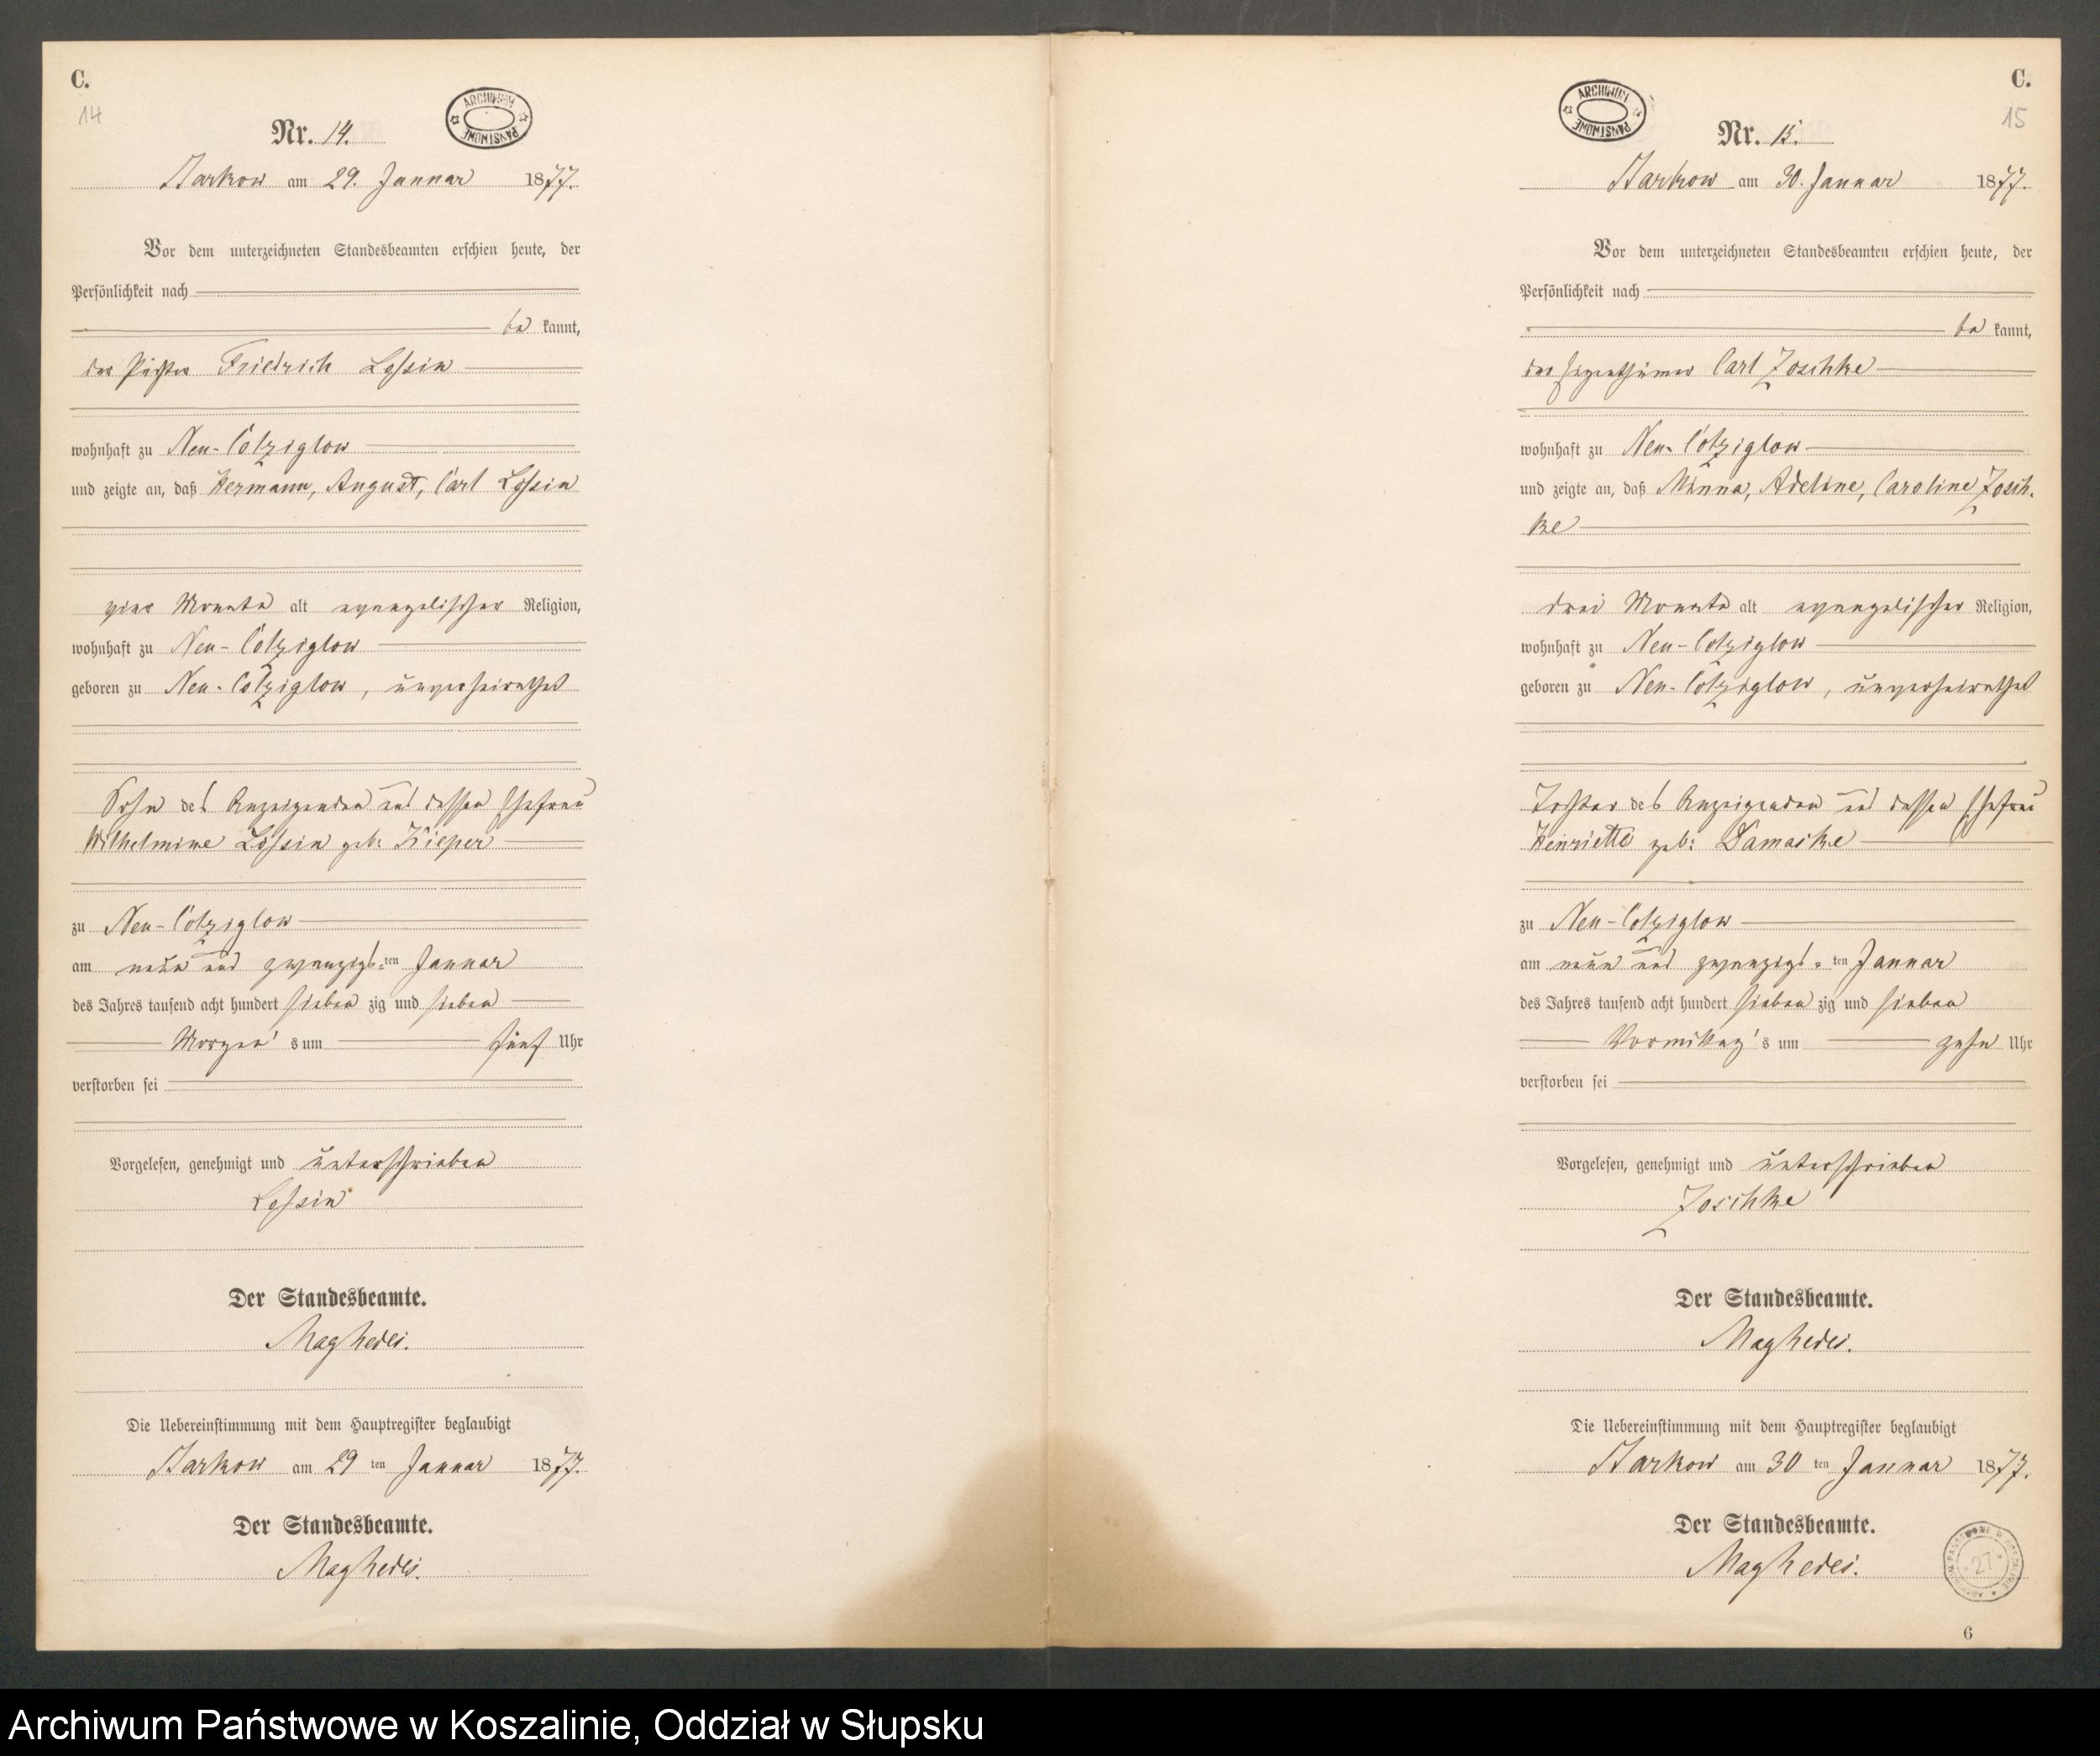 C.
14
Nr. 14.
ARCHIWUM PAŃSTWOWE
Starkow am 29. Januar 1877.
Vor dem unterzeichneten Standesbeamten erschien heute, der
Persönlichkeit nach
be kannt,
der Friedrich Lossin
wohnhaft zu Neu-Cölziglow
und zeigte an, daß Hermann, August, Carl Lossin
vier Monate alt evangelischer Religion,
wohnhaft zu Neu-Cölziglow
geboren zu Neu-Cölziglow, unverheirathet
Sohn des Anzeigenden und dessen Ehefrau
Wilhelmine Lossin geb: Kieper
zu Neu-Cölziglow
am neun und zwanzigs-ten Januar
des Jahres tausend acht hundert sieben zig und sieben
Morgen's um fünf Uhr
verstorben sei
Vorgelesen, genehmigt und unterschrieben
Lossin
Der Standesbeamte.
Die Uebereinstimmung mit dem Hauptregister beglaubigt
Starkow am 29 ten Januar 1877.
Der Standesbeamte.
C.
15
ARCHIWUM PAŃSTWOWE
Nr. 15.
Starkow am 30. Januar 1877.
Vor dem unterzeichneten Standesbeamten erschien heute, der
Persönlichkeit nach
be kannt,
der Eigenthümer Carl Zoschke
wohnhaft zu Neu-Cölziglow
und zeigte an, daß Minna, Adeline, Caroline Zosch-
ke
drei Monate alt evangelischer Religion,
wohnhaft zu Neu-Cölziglow
geboren zu Neu-Cölziglow, unverheirathet
Tochter des Anzeigenden und dessen Ehefrau
Henriette geb: Damaske
zu Neu-Cölziglow
am neun und zwanzigs-ten Januar
des Jahres tausend acht hundert sieben zig und sieben
Vormittag's um zehn Uhr
verstorben sei
Vorgelesen, genehmigt und unterschrieben
Zoschke
Der Standesbeamte.
Die Uebereinstimmung mit dem Hauptregister beglaubigt
Starkow am 30 ten Januar 1877.
Der Standesbeamte.
27
6
Archiwum Państwowe w Koszalinie, Oddział w Słupsku